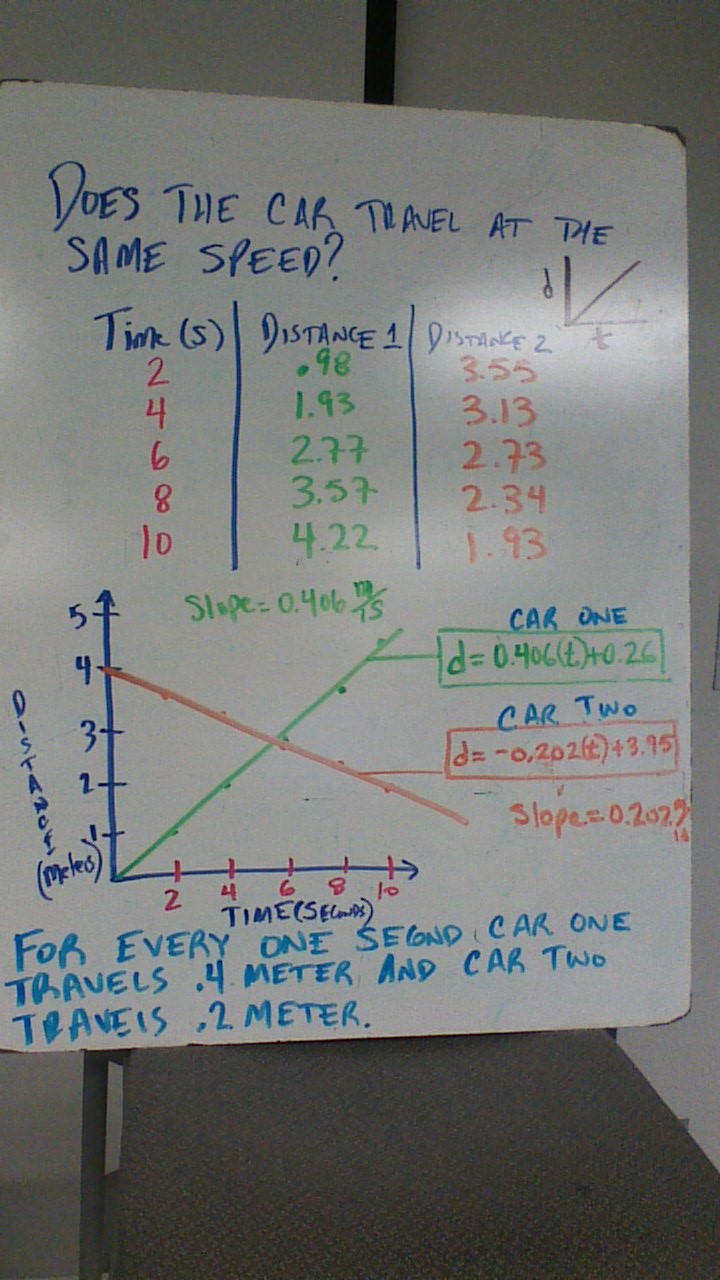 DOES THE CAR TRAVEL AT THE
SAME SPEED?
d
t
Time (s) DISTANCE 1 DISTANCE 2
2 .98 3.55
4 1.93 3.13
6 2.77 2.73
8 3.57 2.34
10 4.22 1.93
Slope = 0.406 m/1s
5
4
3
2
1
DISTANCE
(meters)
CAR ONE
d = 0.406(t)+0.26
CAR TWO
d = -0.202(t)+3.95
Slope = 0.202
2 4 6 8 10
TIME (SECONDS)
FOR EVERY ONE SECOND, CAR ONE
TRAVELS .4 METER AND CAR TWO
TRAVELS .2 METER.